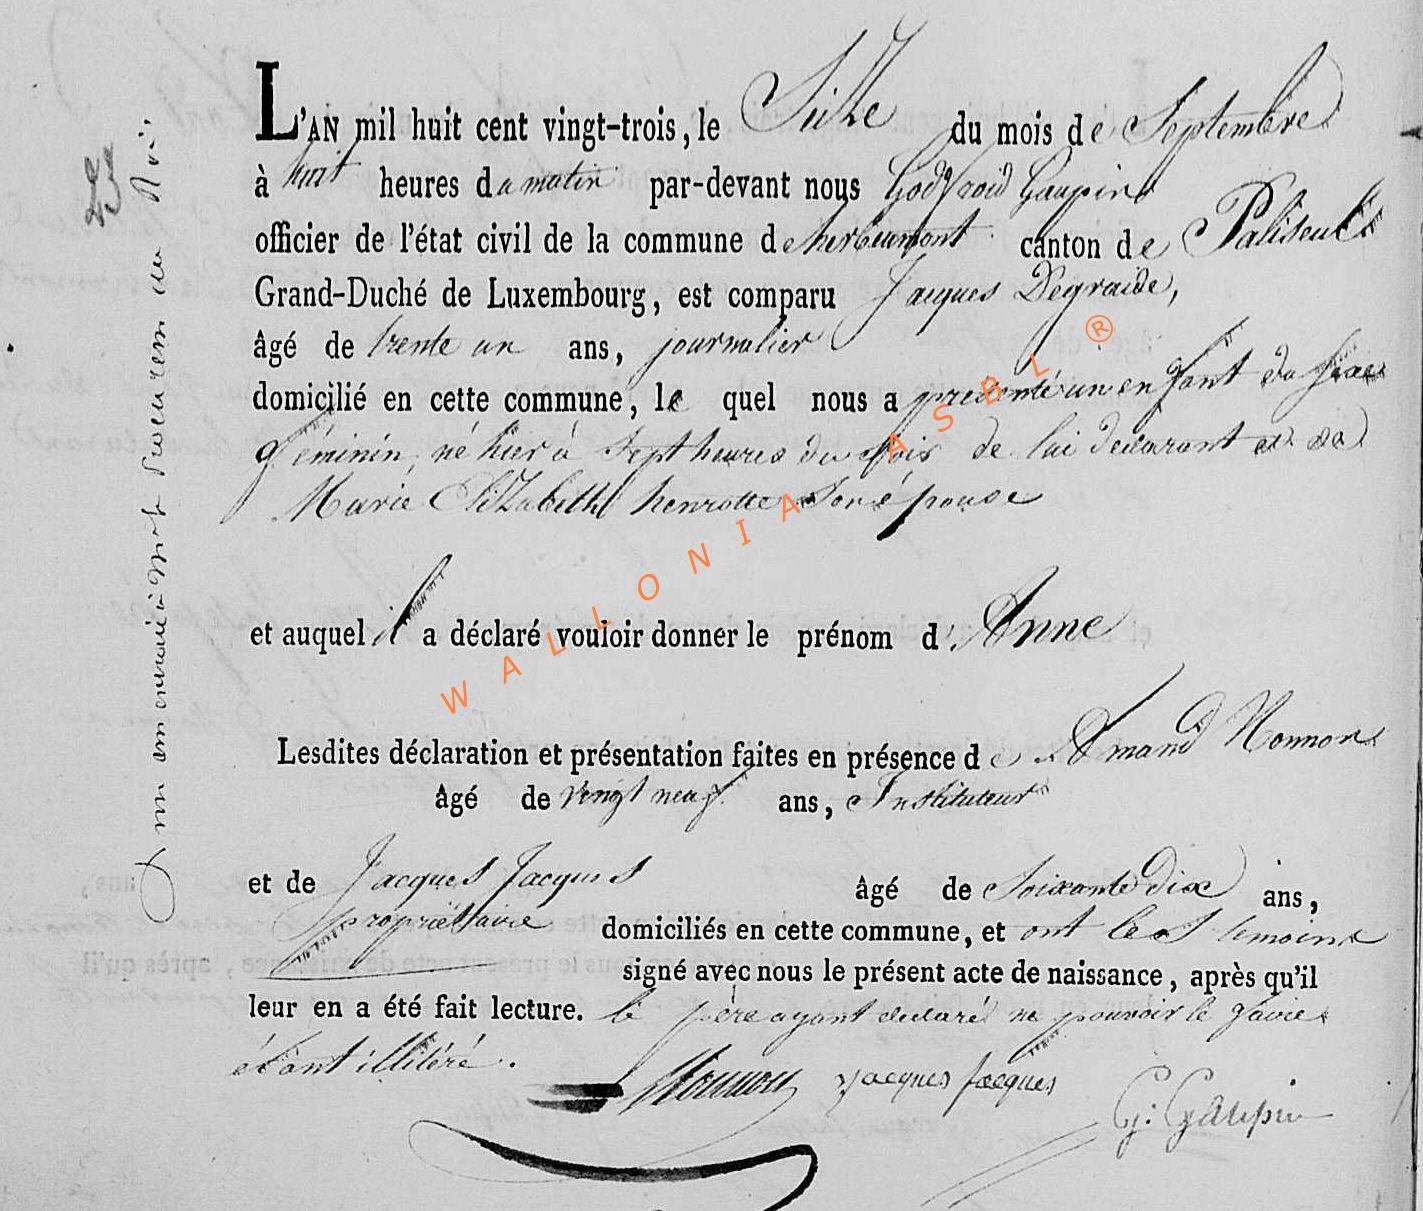 L'AN mil huit cent vingt-trois, le Seize du mois de Septembre
à huit heures du matin par-devant nous Godfroid Gaupin
officier de l'état civil de la commune de herbeumont canton de Paliseul
Grand-Duché de Luxembourg, est comparu Jacques Degraide,
âgé de trente un ans, journalier
domicilié en cette commune, le quel nous a presenté un enfant du sexe
féminin, né hier à Sept heures du soir de lui declarant et de
Marie Elizabeth henrotte Son épouse
et auquel il a déclaré vouloir donner le prénom d' Anne
Lesdites déclaration et présentation faites en présence de Amand Monnon
âgé de vingt neuf ans, Instituteur
et de Jacques Jacques âgé de Soixante Dix ans,
propriettaire domiciliés en cette commune, et ont les temoins
signé avec nous le présent acte de naissance, après qu'il
leur en a été fait lecture. le père ayant declaré ne pouvoir le faire
étant illitéré.
Monnon Jacques Jacques G: Gaupin
envoié à Mr le Procureur du Roi
WALLONIA ASBL ®